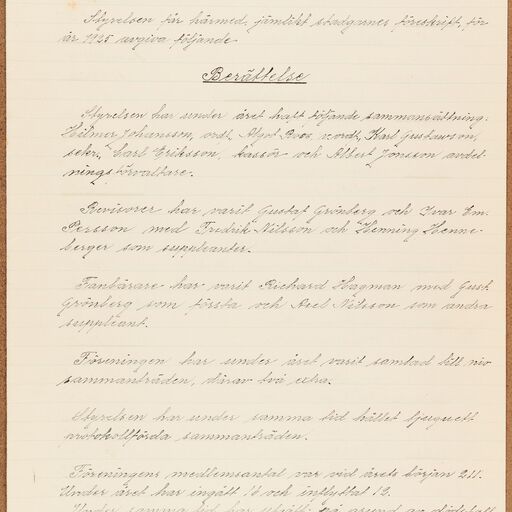 Styrelsen får härmed, jämlikt stadgarnes föreskrift, för
år 1925 avgiva följande
Berättelse
Styrelsen har under året haft följande sammansättning:
Hilmer Johansson, ordf. Algot Roos v.ordf. Karl Gustavsson,
sekr. Carl Eriksson, kassör och Albert Jonsson avdel-
ningsförvaltare.
Revisorer har varit Gustaf Grönberg och Ivar Em.
Persson med Fredrik Nilsson och Henning Henne-
berger som suppleanter.
Fanbärare har varit Richard Hagman med Gust.
Grönberg som första och Axel Nilsson som andra
suppleant.
Föreningen har under året varit samlad till nio
sammanträden, därav två extra.
Styrelsen har under samma tid hållet tjuguett
protokollförda sammanträden.
Föreningens medlemsantal var vid årets början 211.
Under året har ingått 16 och inflyttat 12.
Under samma tid har utgått på grund av dödsfall